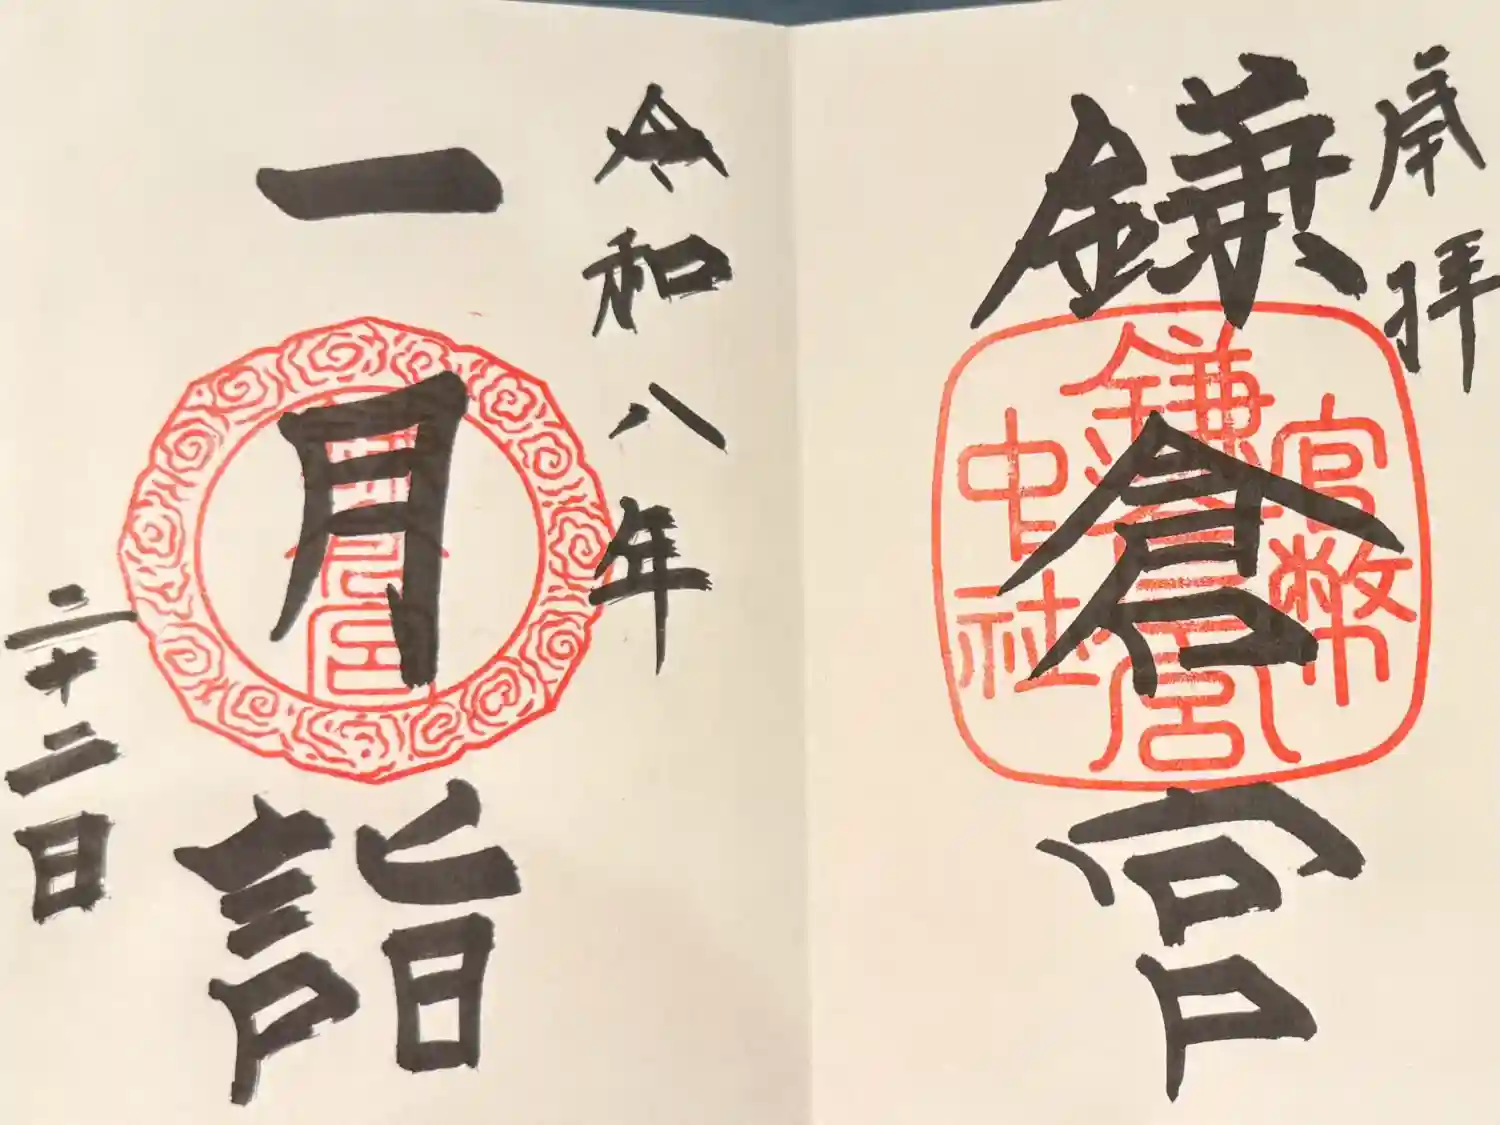 奉拝
鎌倉宮
官幣
鎌倉宮
中社
令和八年
一月詣
二十二日